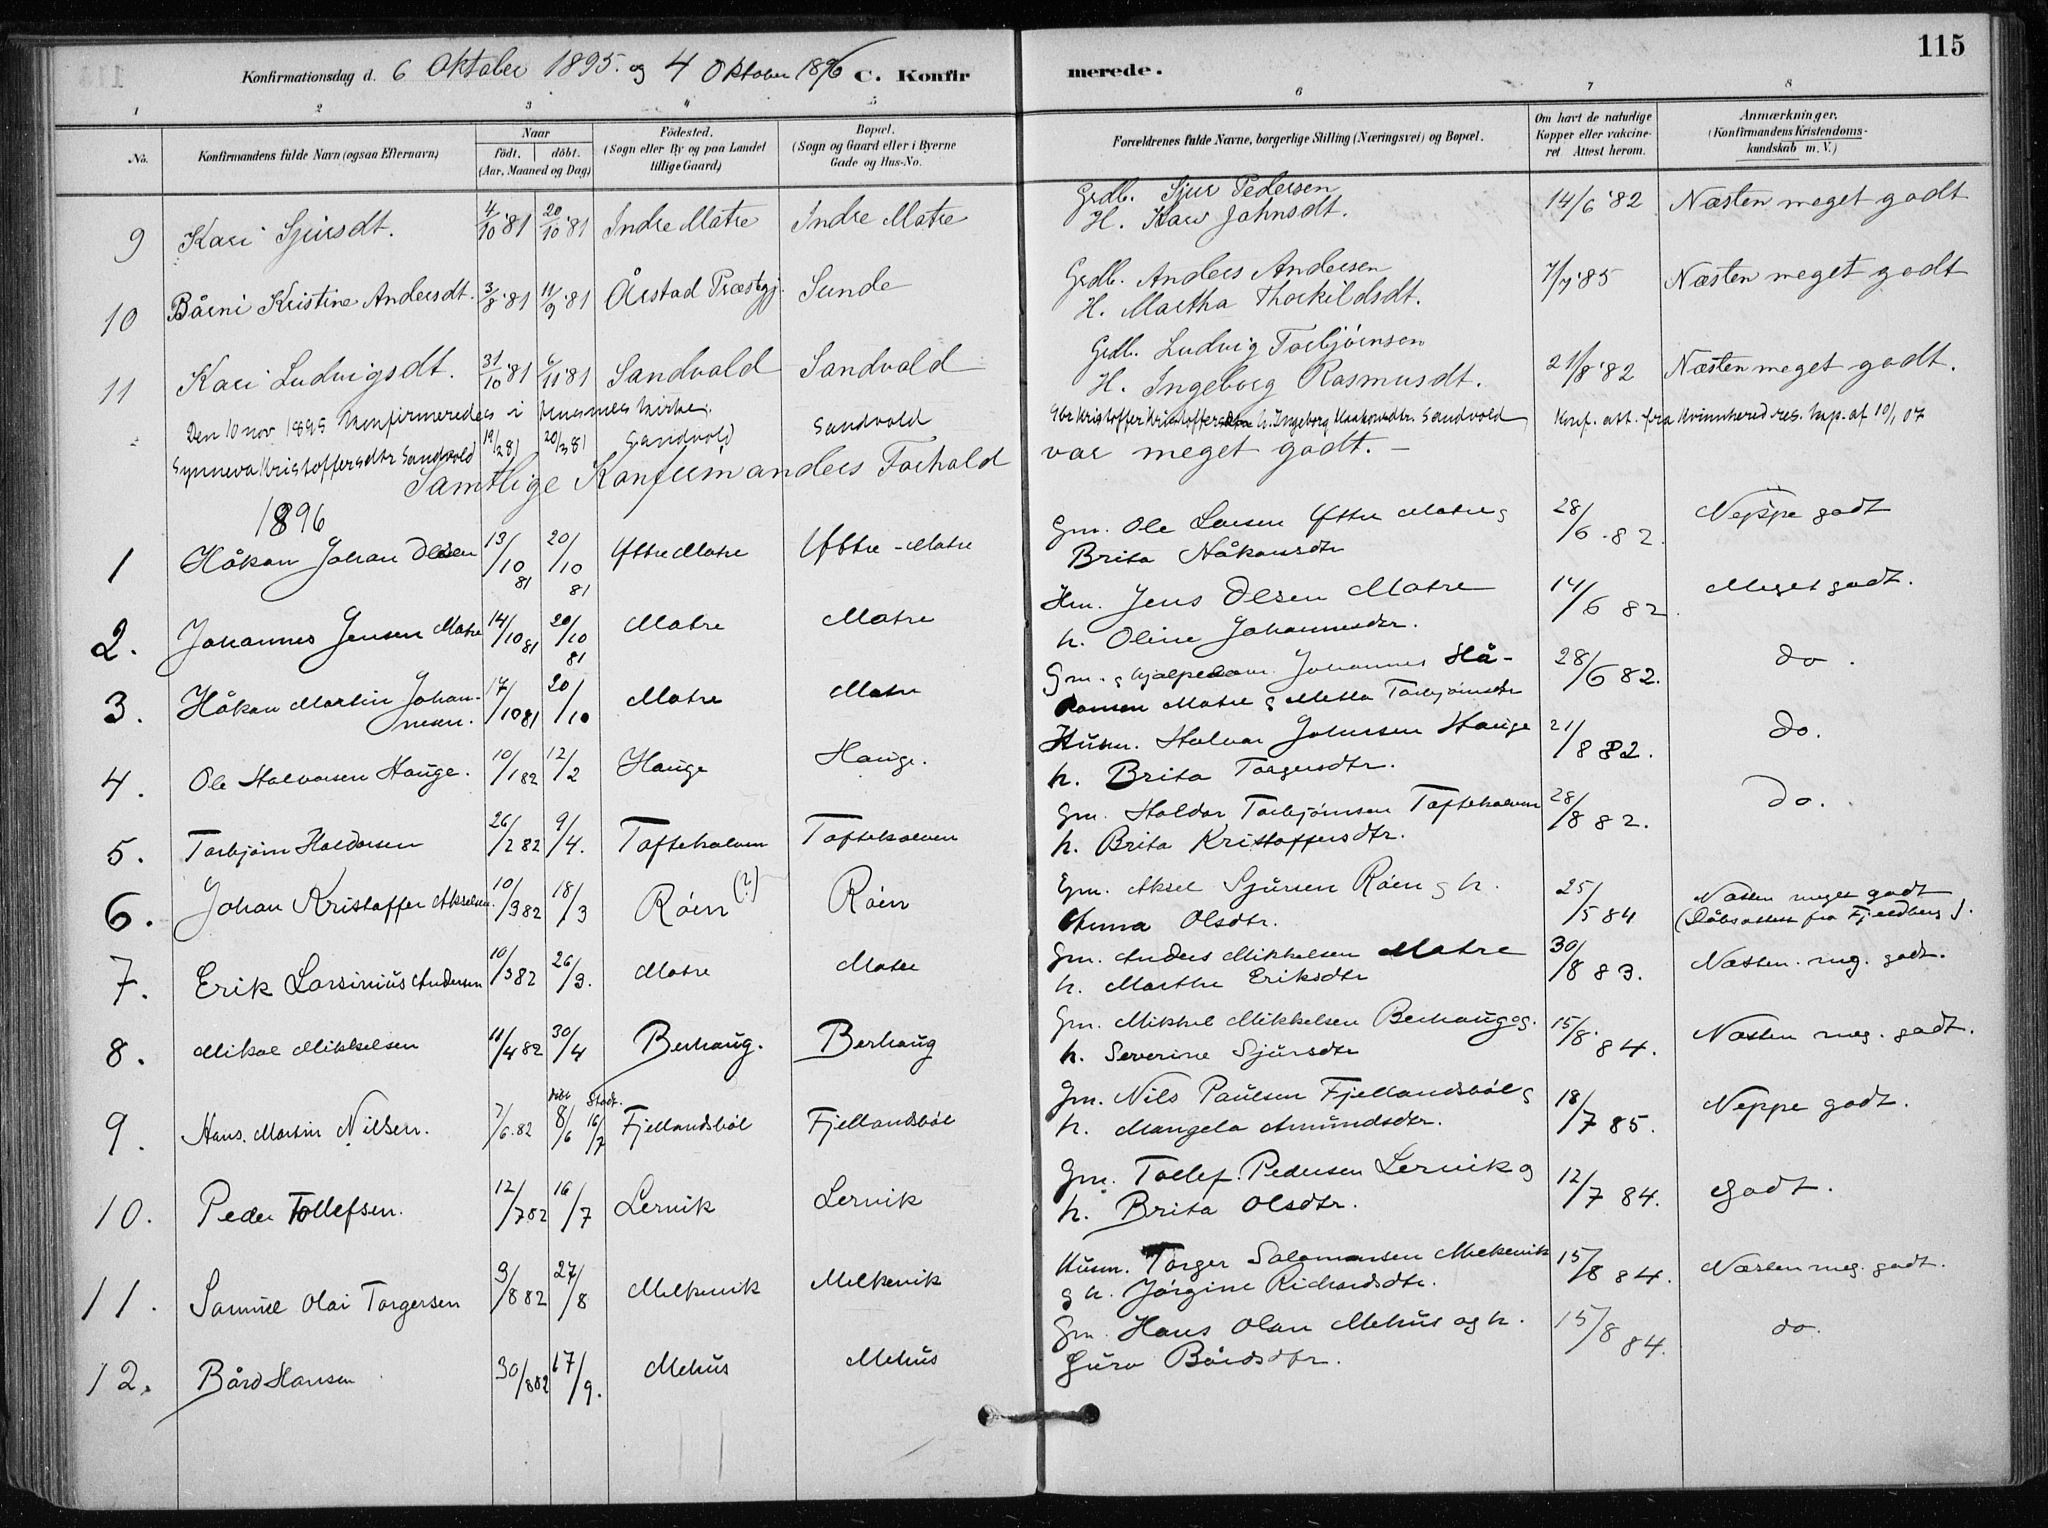 115
Konfirmationsdag d. 6 Oktober 1895. og 4 Oktober 1896 C. Konfirmerede.
1 2 3 4 5 6 7 8
No. Konfirmandens fulde Navn (ogsaa Efternavn) Naar födt. döbt. (Aar, Maaned og Dag) Födested. (Sogn eller By og paa Landet tillige Gaard) Bopæl. (Sogn og Gaard eller i Byerne Gade og Hus-No. Forældrenes fulde Navne, borgerlige Stilling (Næringsvei) og Bopæl. Om havt de naturlige Kopper eller vakcineret Attest herom. Anmærkninger. (Konfirmandens Kristendomskundskab m. V.)
9 Kari Sjursdt. 4/10 '81 20/10 '81 Indre Matre Indre Matre Grdb. Sjur Pedersen 14/6 '82 Næsten meget godt
H. Kari Johnsdt.
10 Bårni Kristine Andersdt. 3/8 '81 11/9 '81 Årstad Præstegj. Sunde Grdb. Anders Andersen 7/7 '85 Næsten meget godt
H. Martha Thorkildsdt.
11 Kari Ludvigsdt. 31/10 '81 6/11 '81 Sandvold Sandvold Grdb. Ludvig Torbjörnsen 21/8 '82 Næsten meget godt.
H. Ingeborg Rasmusdt.
Den 10 nov 1895 konfirmeredes i Husnes kirke:
Synneva Kristoffersdtr Sandvold 19/2 81 20/3 81 Sandvold Sandvold Gbr Kristoffer Kristoffersen h. Ingeborg Haakonsdtr. Sandvold Konf. att. fra Kvinnhered res. kap. af 10/1 07
Samtlige Konfirmanders Forhold var meget godt. –
1896
1 Håkan Johan Olsen 13/10 81 20/10 81 Yttre Matre Yttre - Matre Gm. Ole Larsen Yttre Matre og 28/6 . 82. Neppe godt
Brita Håkansdtr
2. Johannes Jensen Matre 14/10 81 20/10 81 Matre Matre Hm. Jens Olsen Matre 14/6 82. Meget godt.
h. Oline Johannesdtr.
3. Håkan Martin Johannesen. 17/10 81 20/10 Matre Matre Gm. og hjælpedom. Johannes Hå- 28/6 82. do.
kansen Matre og Metta Torbjørnsdtr
4. Ole Halvorsen Hauge. 10/1 82 12/2 Hauge Hauge. Husm. Halvor Johnsen Hauge 21/8 82. do.
h. Brita Torgersdtr.
5. Torbjörn Haldorsen 26/2 82 9/4. Toftekalven Toftekalven Gm. Haldor Torbjörnsen Toftekalven 28/8 82. do.
h. Brita Kristoffersdtr.
6. Johan Kristoffer Akselsen. 10/3 82 18/3 Röen (?) Röen Gm. Aksel Sjursen Röen og h. 25/5 84 Næsten meget godt
Anna Olsdtr. (Dåbsattest fra Fjeldberg).
7. Erik Larsinius Andersen 10/3 82 26/3. Matre Matre Gm. Anders Mikkelsen Matre 30/8 83. Næsten. meg. godt.
h. Marthe Eriksdtr
8. Mikal Mikkelsen 11/4 82 30/4 Berhaug. Berhaug Gm. Mikkel Mikkelsen Berhaug og. 15/8. 84. Næsten meg. godt.
h. Severine Sjursdtr
9. Hans. Martin Nilsen. 7/6. 82 8/6 16/7 Fjellandsböl Fjellandsböl Gm. Nils Paulsen Fjellandsböl og 18/7 85. Neppe godt.
h. Mangela Amundsdtr.
10. Peder Tollefsen. 12/7 82 16/7 Lervik Lervik Gm. Tollef. Pedersen Lervik og 12/7 84. Godt.
h. Brita Olsdtr.
11. Samuel Olai Torgersen 3/8 82 27/8 Melkevik Melkevik Husm. Torger Salamonsen Melkevik 15/8 84. Næsten meg. godt.
og h. Jörgine Richardsdtr.
12. Bård Hansen 30/8 82 17/9. Mehus Mehus Gm. Hans Olsen Mehus og h. 15/8 84. do.
Guro Bårdsdtr.